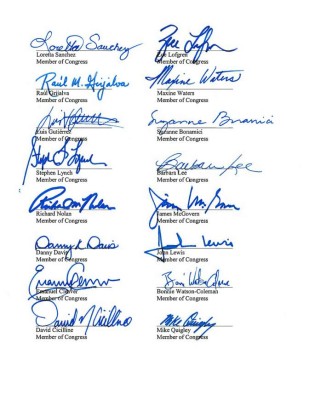 Loretta Sanchez
Loretta Sanchez
Member of Congress
Raúl M. Grijalva
Raúl Grijalva
Member of Congress
Luis Gutiérrez
Member of Congress
Stephen Lynch
Member of Congress
Richard Nolan
Member of Congress
Danny K. Davis
Danny Davis
Member of Congress
Emanuel Cleaver
Member of Congress
David N Cicilline
David Cicilline
Member of Congress
Zoe Lofgren
Zoe Lofgren
Member of Congress
Maxine Waters
Maxine Waters
Member of Congress
Suzanne Bonamici
Suzanne Bonamici
Member of Congress
Barbara Lee
Barbara Lee
Member of Congress
James McGovern
Member of Congress
John Lewis
John Lewis
Member of Congress
Bonnie Watson-Coleman
Member of Congress
Mike Quigley
Mike Quigley
Member of Congress